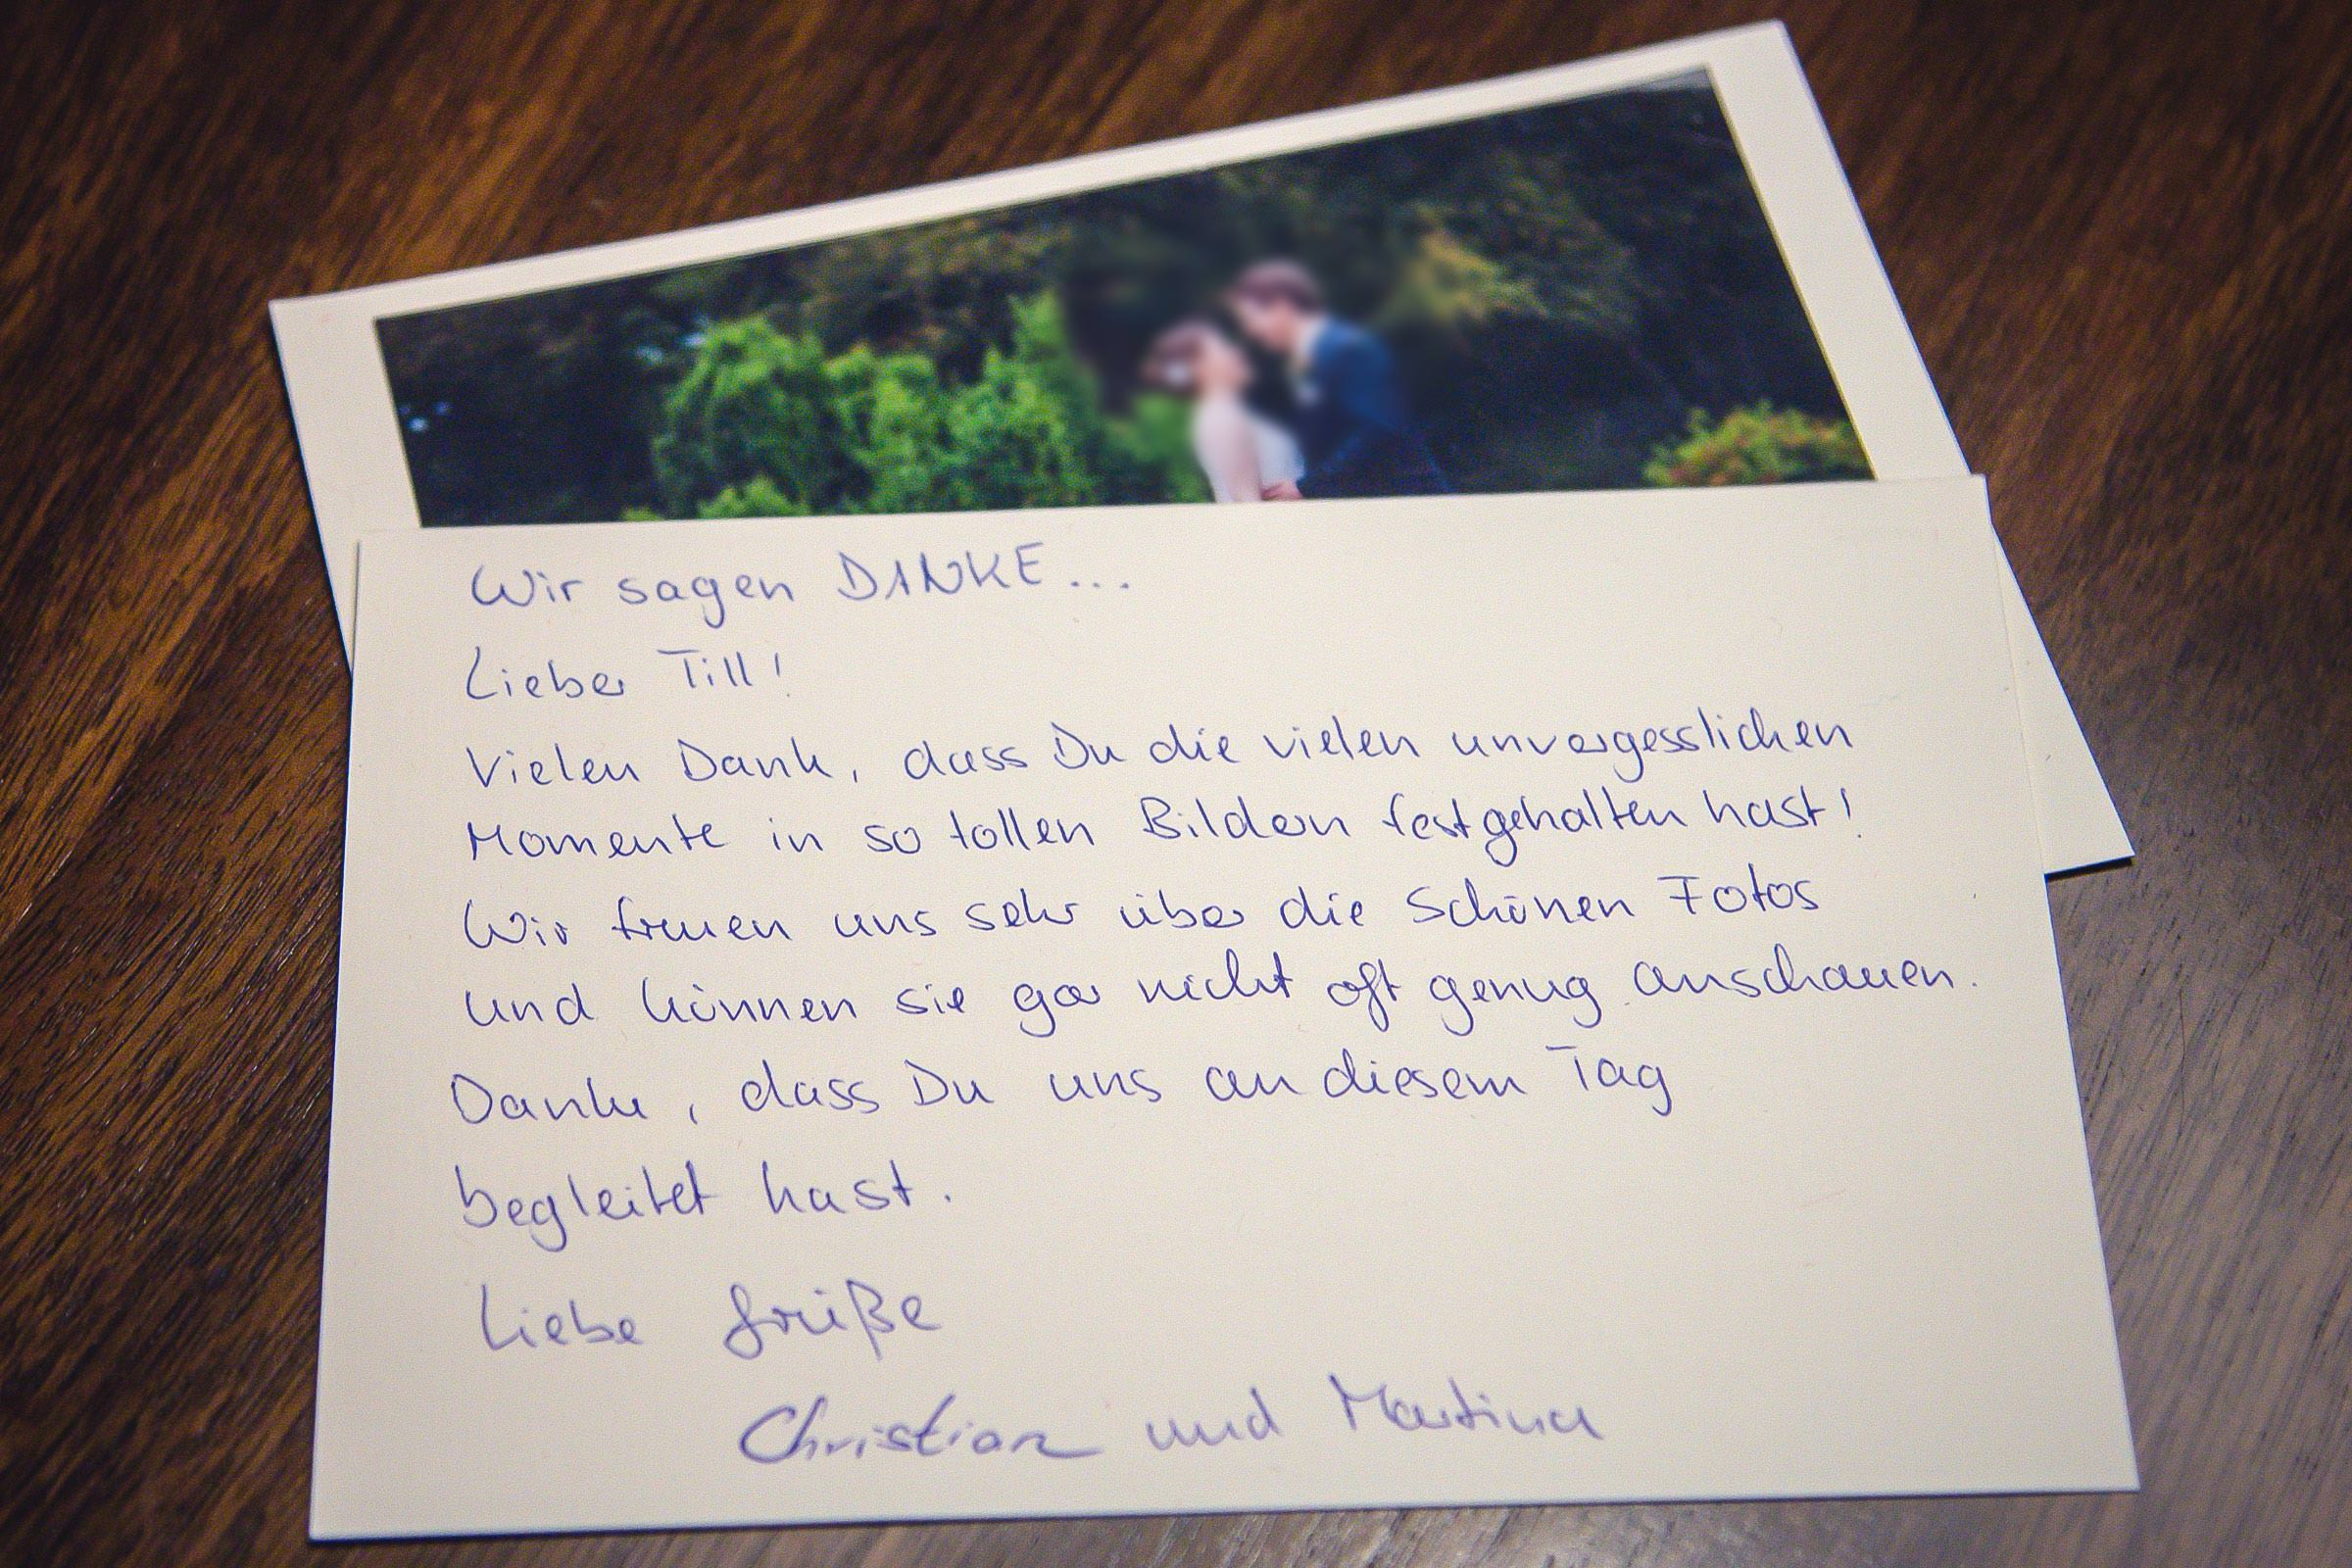 Wir sagen DANKE...
Lieber Till!
Vielen Dank, dass Du die vielen unvergesslichen
Momente in so tollen Bildern festgehalten hast!
Wir freuen uns sehr über die schönen Fotos
und können sie gar nicht oft genug anschauen.
Danke, dass Du uns an diesem Tag
begleitet hast.
Liebe Grüße
Christian und Martina